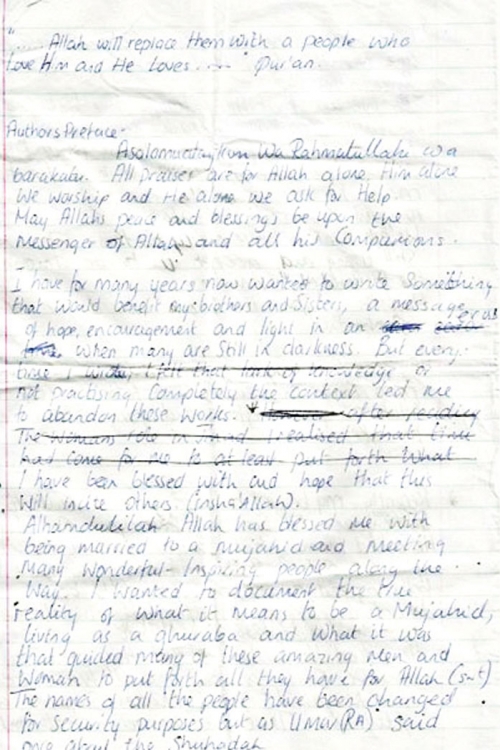 "..... Allah will replace them with a people who
Love Him and He Loves. ..... " Qur'an.
Authors Preface -
Asalamualaykum Wa Rahmatullahi wa
barakatu. All praises are for Allah alone, Him alone
We worship and He alone we ask for Help.
May Allahs peace and blessings be upon the
Messenger of Allah and all his Companions.
I have for many years now wanted to write Something
that would benefit my brothers and Sisters, a message
of hope, encouragement and light in an
when many are Still in darkness. But every
time I wrote, I felt that lack of knowledge or
not practising Completely the context led me
to abandon these works. after reading
The womans role in Jihad I realised that time
had come for me to at least put forth what
I have been blessed with and hope that this
will incite others (insha'Allah).
Alhamdulilah Allah has blessed me with
being married to a mujahid and meeting
Many wonderful - Inspiring people along the
Way. I wanted to document the true
reality of what it means to be a Mujahid,
living as a ghuraba and what it was
that guided many of these amazing Men and
Woman to put forth all they have for Allah (swt)
The names of all the people have been changed
for Security purposes but as Umar (RA) said
once about the Shuhadah